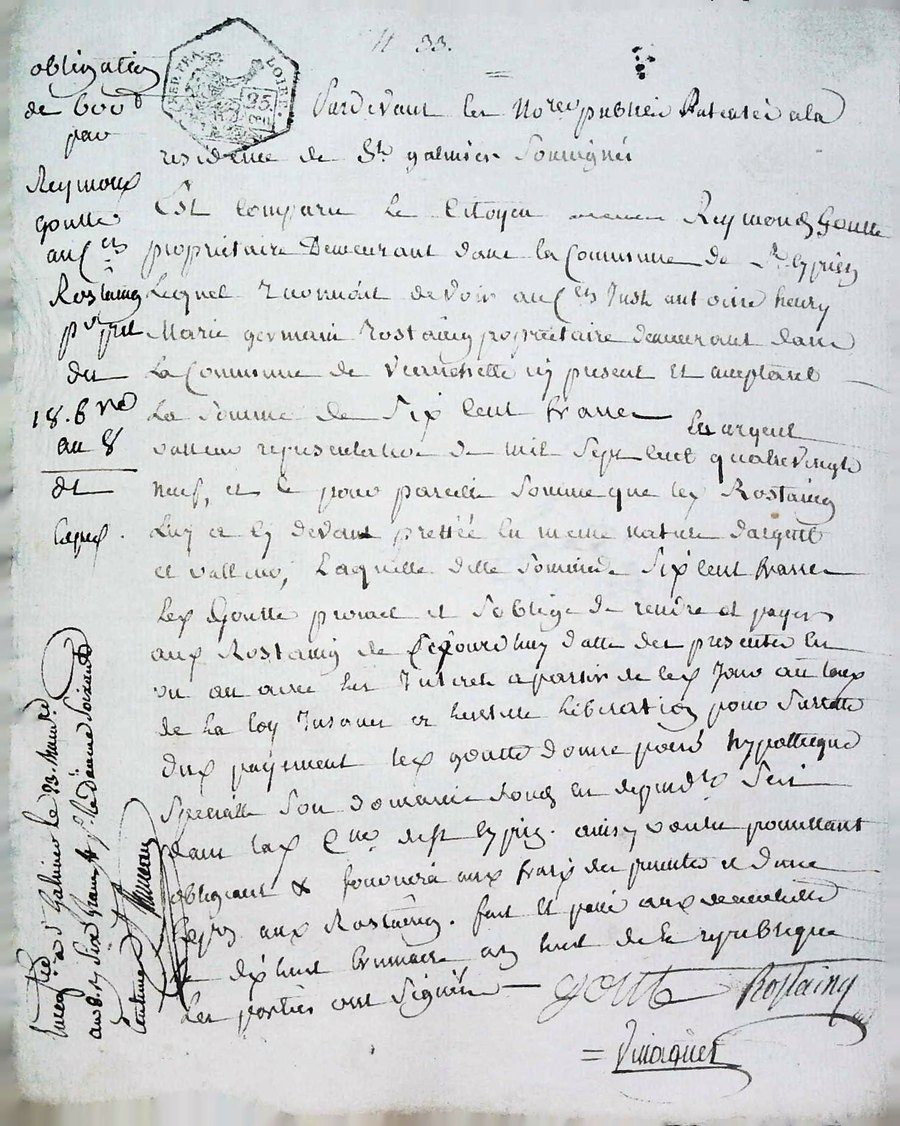 N 33.
obligation
de 600#
par
Reymond
Goutte
au Cen
Rostaing
du
18. b re
an 8
LOIRE.
25
cen
Pardevant les No.res publics Patentés a la
residence de St. galmier Soussignés
Est comparu le Citoyen Reymond Goutte
propriétaire Demeurant dans la Commune de St. Cyprien
Lequel reconnoit devoir au Cen Just antoine henry
Marie germain Rostaing propriétaire demeurant dans
La Commune de icy present et acceptant
La Somme de Six Cent francs En argent
valleur representative de mil Sept Cent quatrevingt
neuf, et ce pour pareille Somme que led. Rostaing
Luy a cy devant prettée en meme nature d'argent
et valleur, Laquelle ditte Somme de Six Cent francs
Led. Goutte promet et S'oblige de rendre et payer
aud. Rostaing de d'atte des presentes en
un an avec les Interets a partir de ce Jour au taux
de la loy Jusques a Libération pour Surette
dud. payement led. goutte donne pour hypotheque
Specialle Son domaine fonds et dependces Scis
dans lad. Cne de St. Cyprien. ainsy voulu promettant
obligeant & fournira aux frais des presentes et d'une
expon aud. Rostaing. fait et passé
Le dixhuit brumaire an huit de la republique
Les parties ont Signées
Goutte Rostaing
= Vinoy
Enregistré à St. Galmier le 23. brumaire
an 8. reçu Six francs pr. le dixieme Soixante
Centimes